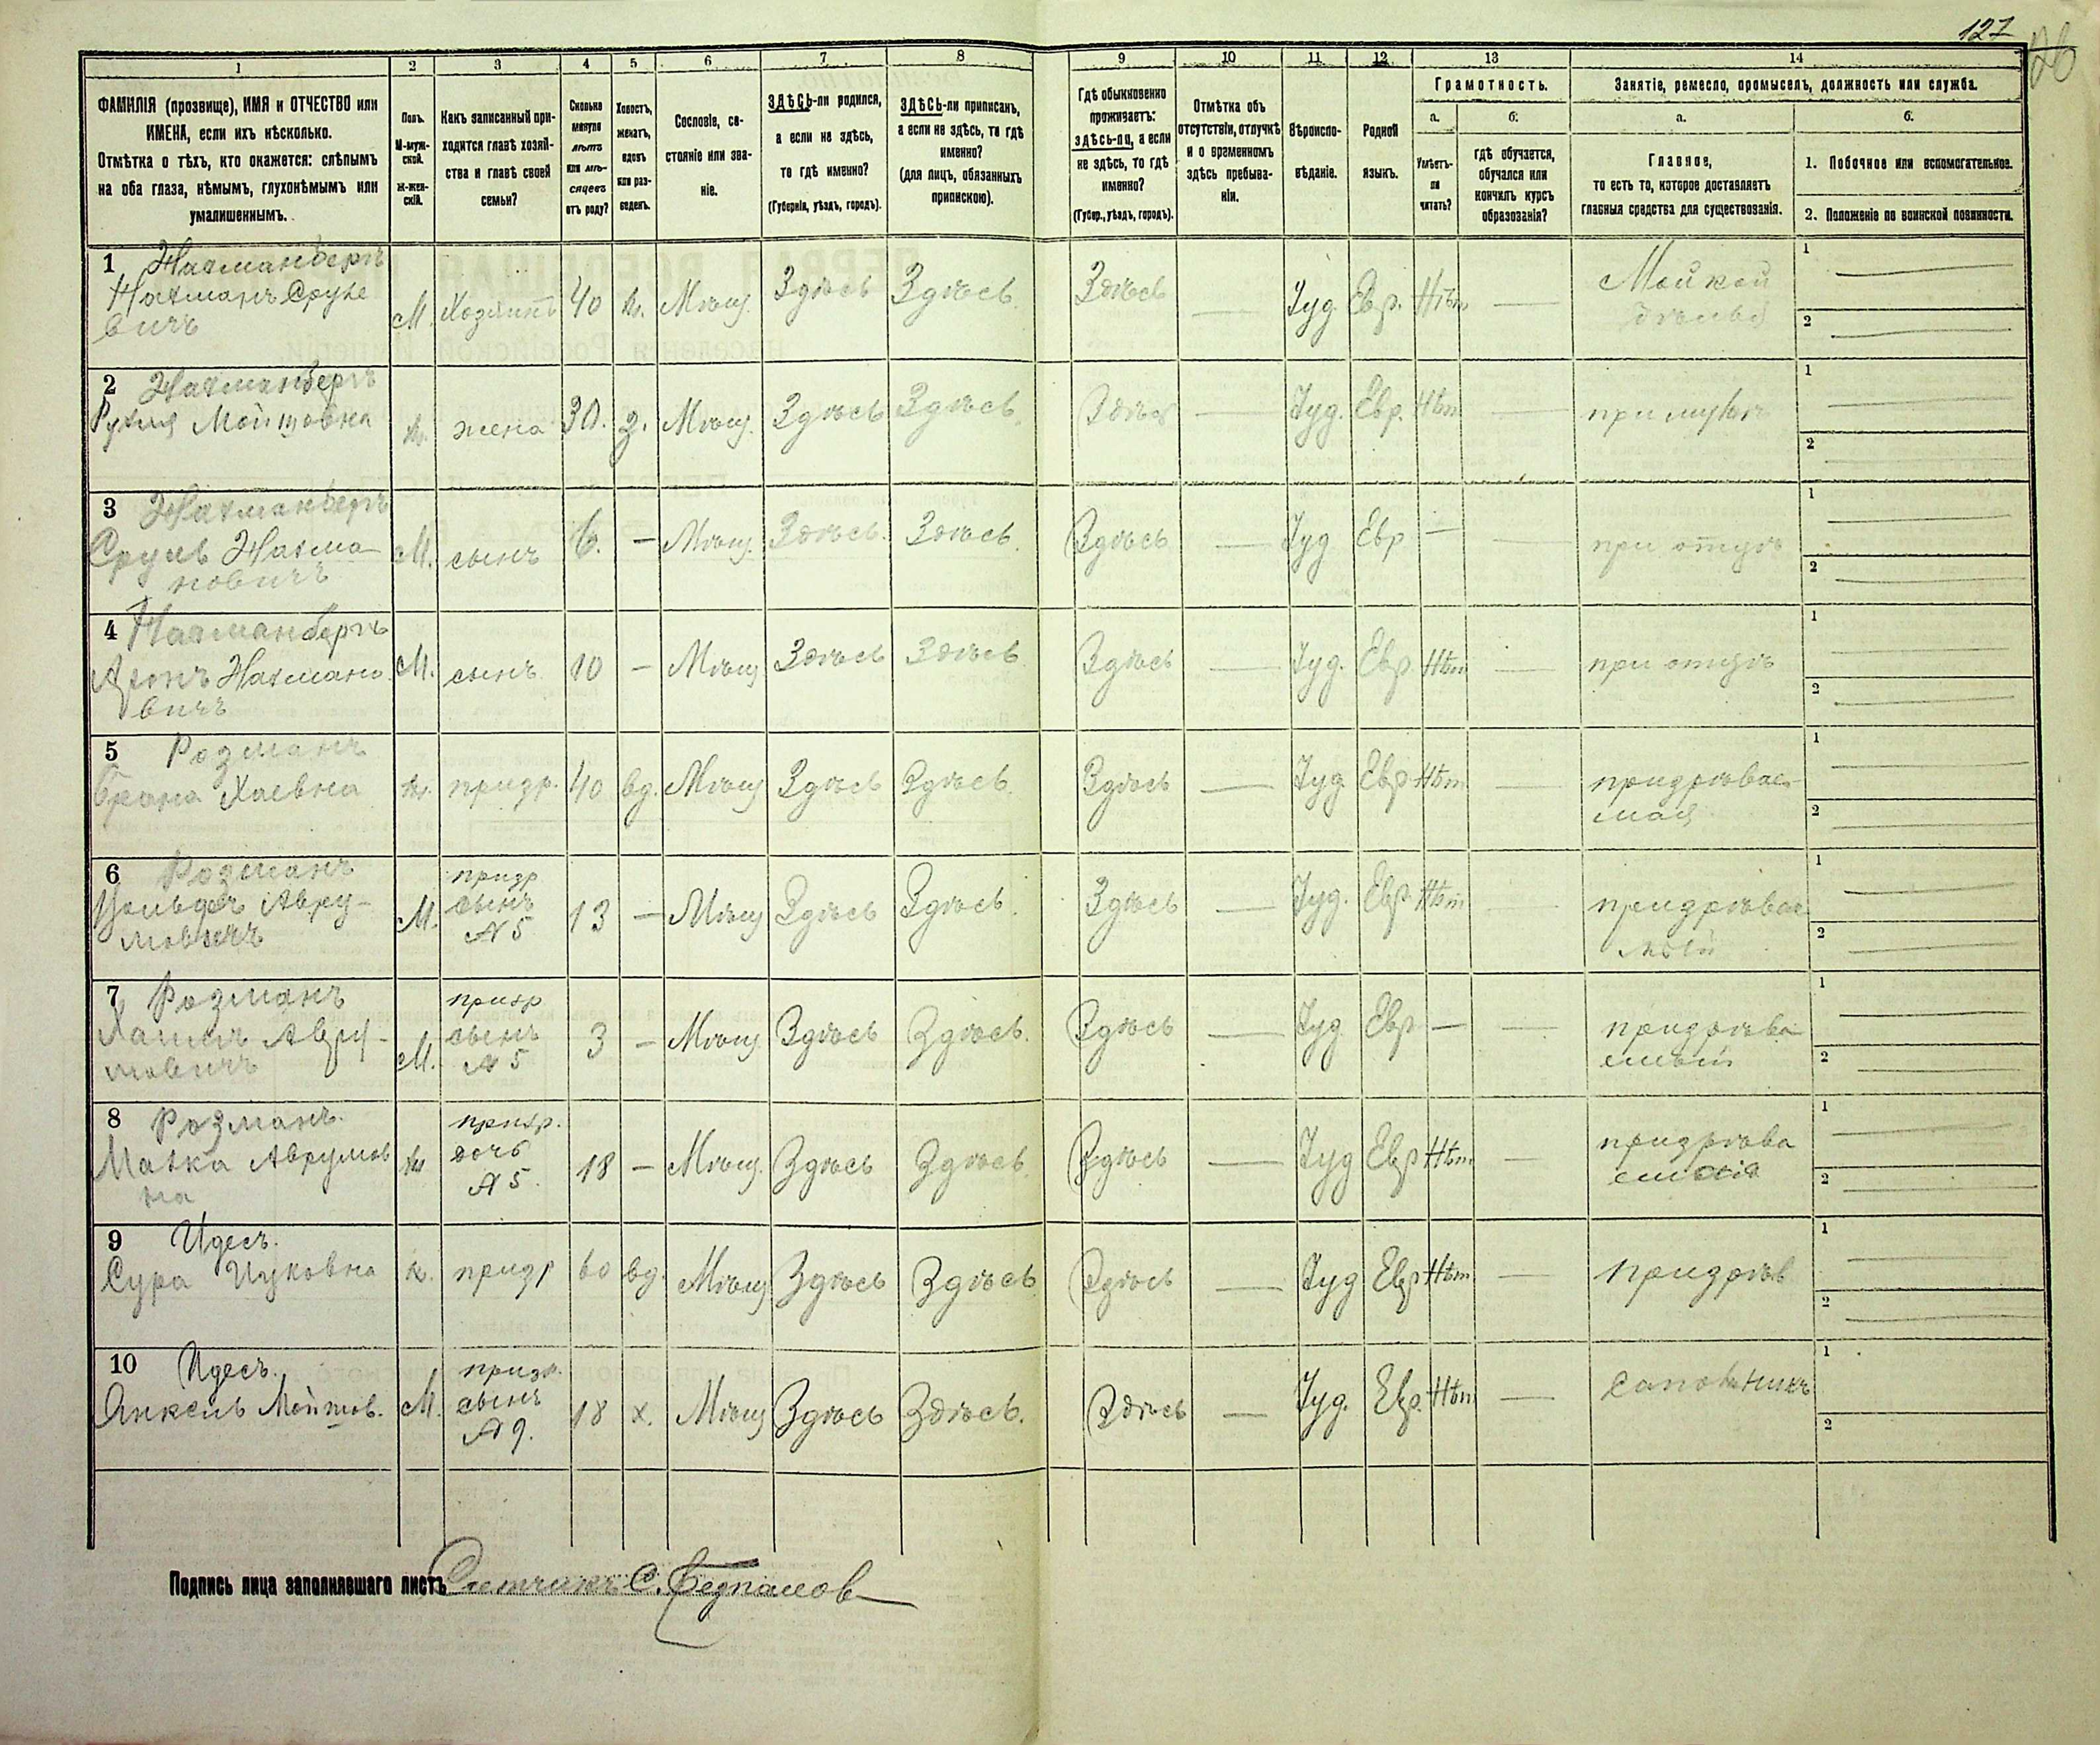 127
26
1 2 3 4 5 6 7 8 9 10 11 12 13 14
ФАМИЛІЯ (прозвище), ИМЯ и ОТЧЕСТВО или
ИМЕНА, если ихъ нѣсколько.
Отмѣтка о тѣхъ, кто окажется: слѣпымъ
на оба глаза, нѣмымъ, глухонѣмымъ или
умалишеннымъ.
Полъ.
М-муж-
ской.
Ж-жен-
скій.
Какъ записанный при-
ходится главѣ хозяй-
ства и главѣ своей
семьи?
Сколько
минуло
лѣтъ
или мѣ-
сяцевъ
отъ роду?
Холостъ,
женатъ,
вдовъ
или раз-
веденъ.
Сословіе, со-
стояніе или зва-
ніе.
ЗДѢСЬ-ли родился,
а если не здѣсь,
то гдѣ именно?
(Губернія, уѣздъ, городъ).
ЗДѢСЬ-ли приписанъ,
а если не здѣсь, то гдѣ
именно?
(для лицъ, обязанныхъ
припискою).
Гдѣ обыкновенно
проживаетъ:
здѣсь-ли, а если
не здѣсь, то гдѣ
именно?
(Губер., уѣздъ, городъ).
Отмѣтка объ
отсутствіи, отлучкѣ
и о временномъ
здѣсь пребыва-
ніи.
Вѣроиспо-
вѣданіе.
Родной
языкъ.
Грамотность.
а.
Умѣетъ-
ли
читать?
б.
гдѣ обучается,
обучался или
кончилъ курсъ
образованія?
Занятіе, ремесло, промыселъ, должность или служба.
а.
Главное,
то есть то, которое доставляетъ
главныя средства для существованія.
б.
1. Побочное или вспомогательное.
2. Положеніе по воинской повинности.
1 Нахманбергъ
Нахманъ Сруле
вичъ
М. Хозяинъ 40 ж. Мѣщ. Здѣсь Здѣсь. Здѣсь — Іуд. Евр. Нѣт —
1
2
2 Нахманбергъ
Рухля Мойшовна
ж. жена 30. з. Мѣщ. Здѣсь Здѣсь. Здѣсь — Іуд. Евр. Нѣт — при мужѣ
1
2
3 Нахманбергъ
Сруль Нахма-
новичъ
М. сынъ 6. — Мѣщ. Здѣсь. Здѣсь. Здѣсь — Іуд Евр — — при отцѣ
1
2
4 Нахманбергъ
Аронъ Нахмано
вичъ
М. сынъ 10 — Мѣщ Здѣсь Здѣсь Здѣсь — Іуд. Евр Нѣт — при отцѣ
1
2
5 Розманъ
Брана Хаевна
ж. призр. 40 вд. Мѣщ Здѣсь Здѣсь. Здѣсь — Іуд Евр Нѣт — призрѣвае-
мая
1
2
6 Розманъ
Авру-
мовичъ
М. призр
сынъ
№ 5
13 — Мѣщ Здѣсь Здѣсь. Здѣсь — Іуд. Евр. Нѣт — призрѣвае
мый
1
2
7 Розманъ
Авру-
мовичъ
М. призр
сынъ
№ 5
3 — Мѣщ. Здѣсь Здѣсь. Здѣсь — Іуд. Евр — — призрѣва
емый
1
2
8 Розманъ.
Малка Аврумов
на
ж призр.
дочь
№ 5.
18 — Мѣщ. Здѣсь Здѣсь. Здѣсь — Іуд Евр Нѣт — призрѣва
емая
1
2
9 Идесъ.
Сура Ицковна
ж. призр 60 вд. Мѣщ Здѣсь Здѣсь Здѣсь — Іуд Евр Нѣт — призрѣв
1
2
10 Идесъ.
Янкель Мойшов.
М. призр.
сынъ
№ 9.
18 х. Мѣщ Здѣсь Здѣсь. Здѣсь — Іуд. Евр. Нѣт — сапожникъ
1
2
Подпись лица заполнявшаго листъ Счетчикъ С.